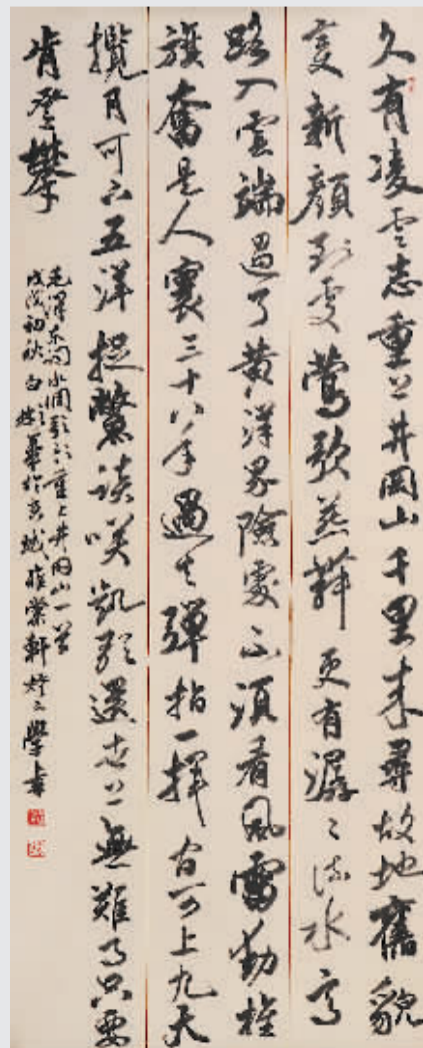 久有凌雲志重上井岡山千里来尋故地舊貌
變新顔到處鶯歌燕舞更有潺〻流水高
路入雲端過了黄洋界險處不須看風雷動旌
旗奮是人寰三十八年過去彈指一揮間可上九天
攬月可下五洋捉鱉談笑凱歌還世上無難事只要
肯登攀
毛澤東詞水調歌頭重上井岡山一首
戊戌初秋白華於京城軒燈下學書